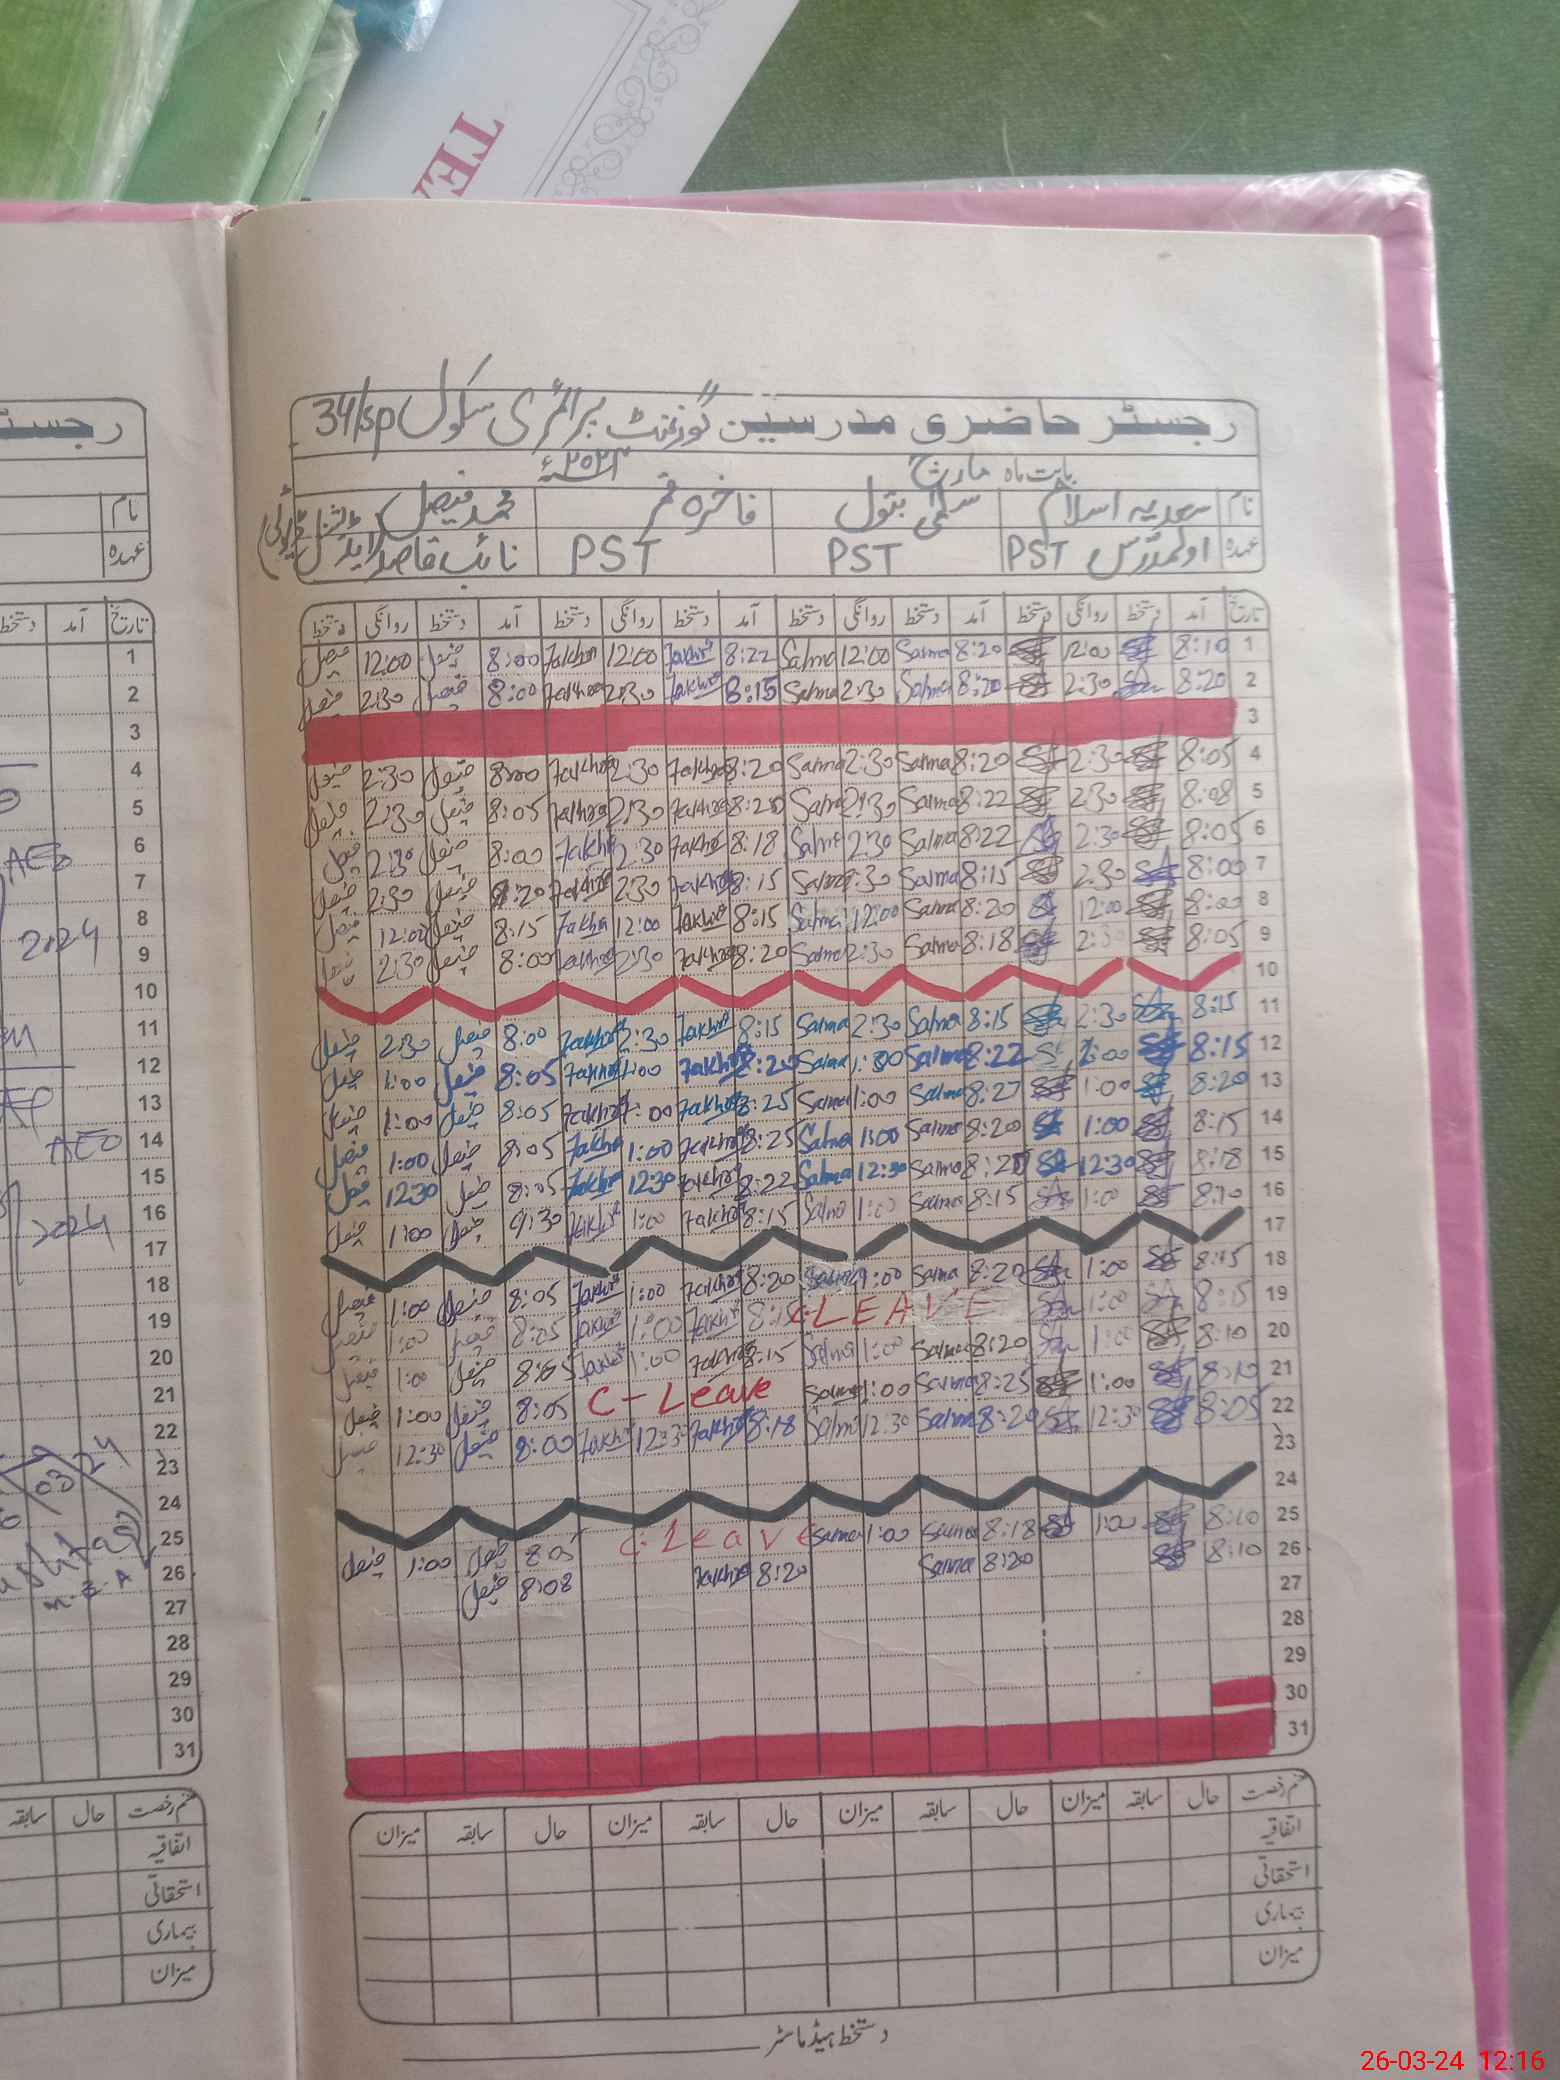 TEA
رجسٹر حاضری مدرسین گورنمنٹ پرائمری سکول 34/SP
بابت ماہ مارچ ۲۰۲۴ء
نام سعدیہ اسلام سلمیٰ بتول فاخرہ قمر محمد فیصل
عہدہ اول مدرس PST PST PST نائب قاصد
تاریخ آمد دستخط روانگی دستخط آمد دستخط روانگی دستخط آمد دستخط روانگی دستخط آمد دستخط روانگی دستخط
1 8:10 12:00 8:20 Salma 12:00 Salma 8:22 Fakhra 12:00 Fakhra 8:00 فیصل 12:00 فیصل
2 8:20 2:30 8:20 Salma 2:30 Salma 8:15 Fakhra 2:30 Fakhra 8:00 فیصل 2:30 فیصل
3
4 8:05 2:30 8:20 Salma 2:30 Salma 8:20 Fakhra 2:30 Fakhra 8:00 فیصل 2:30 فیصل
5 8:08 2:30 8:22 Salma 2:30 Salma 8:20 Fakhra 2:30 Fakhra 8:05 فیصل 2:30 فیصل
6 8:05 2:30 8:22 Salma 2:30 Salma 8:18 Fakhra 2:30 Fakhra 8:00 فیصل 2:30 فیصل
7 8:00 2:30 8:15 Salma 2:30 Salma 8:15 Fakhra 2:30 Fakhra فیصل 2:30 فیصل
8 8:00 12:00 8:20 Salma 12:00 Salma 8:15 Fakhra 12:00 Fakhra 8:15 فیصل 12:00 فیصل
9 8:05 2:30 8:18 Salma 2:30 Salma 8:20 Fakhra 2:30 Fakhra 8:00 فیصل 2:30 فیصل
10
11 8:15 2:30 8:15 Salma 2:30 Salma 8:15 Fakhra 2:30 Fakhra 8:00 فیصل 2:30 فیصل
12 8:15 1:00 8:22 Salma 1:00 Salma 8:20 Fakhra 1:00 Fakhra 8:05 فیصل 1:00 فیصل
13 8:20 1:00 8:27 Salma 1:00 Salma 8:25 Fakhra 1:00 Fakhra 8:05 فیصل 1:00 فیصل
14 8:15 1:00 8:20 Salma 1:00 Salma 8:25 Fakhra 1:00 Fakhra 8:05 فیصل 1:00 فیصل
15 8:18 12:30 Salma 12:30 Salma 8:22 Fakhra 12:30 Fakhra 8:05 فیصل 12:30 فیصل
16 8:10 1:00 8:15 Salma 1:00 Salma 8:15 Fakhra 1:00 Fakhra 9:30 فیصل 1:00 فیصل
17
18 8:15 1:00 8:20 Salma 1:00 Salma 8:20 Fakhra 1:00 Fakhra 8:05 فیصل 1:00 فیصل
19 8:15 1:00 C-LEAVE 8:15 Fakhra 1:00 Fakhra 8:05 فیصل 1:00 فیصل
20 8:10 1:00 8:20 Salma 1:00 Salma 8:15 Fakhra 1:00 Fakhra 8:05 فیصل 1:00 فیصل
21 8:10 1:00 8:25 Salma 1:00 Salma C-Leave 8:05 فیصل 1:00 فیصل
22 8:05 12:30 8:20 Salma 12:30 Salma 8:18 Fakhra 12:30 Fakhra 8:00 فیصل 12:30 فیصل
23
24
25 8:10 1:00 8:18 Salma 1:00 Salma C-Leave 8:05 فیصل 1:00 فیصل
26 8:10 8:20 Salma 8:20 Fakhra 8:08 فیصل
27
28
29
30
31
قسم رخصت حال سابقہ میزان حال سابقہ میزان حال سابقہ میزان حال سابقہ میزان
اتفاقیہ
استحقاقی
بیماری
میزان
دستخط ہیڈ ماسٹر
رجسٹر
نام
عہدہ
تاریخ آمد دستخط
1
2
3
4
5
6 AEO
7
8 2024
9
10
11
12
13
14 AEO
15
16 2024
17
18
19
20
21
22
23 03/24
24
25
26
27
28
29
30
31
قسم رخصت حال سابقہ
اتفاقیہ
استحقاقی
بیماری
میزان
26-03-24 12:16